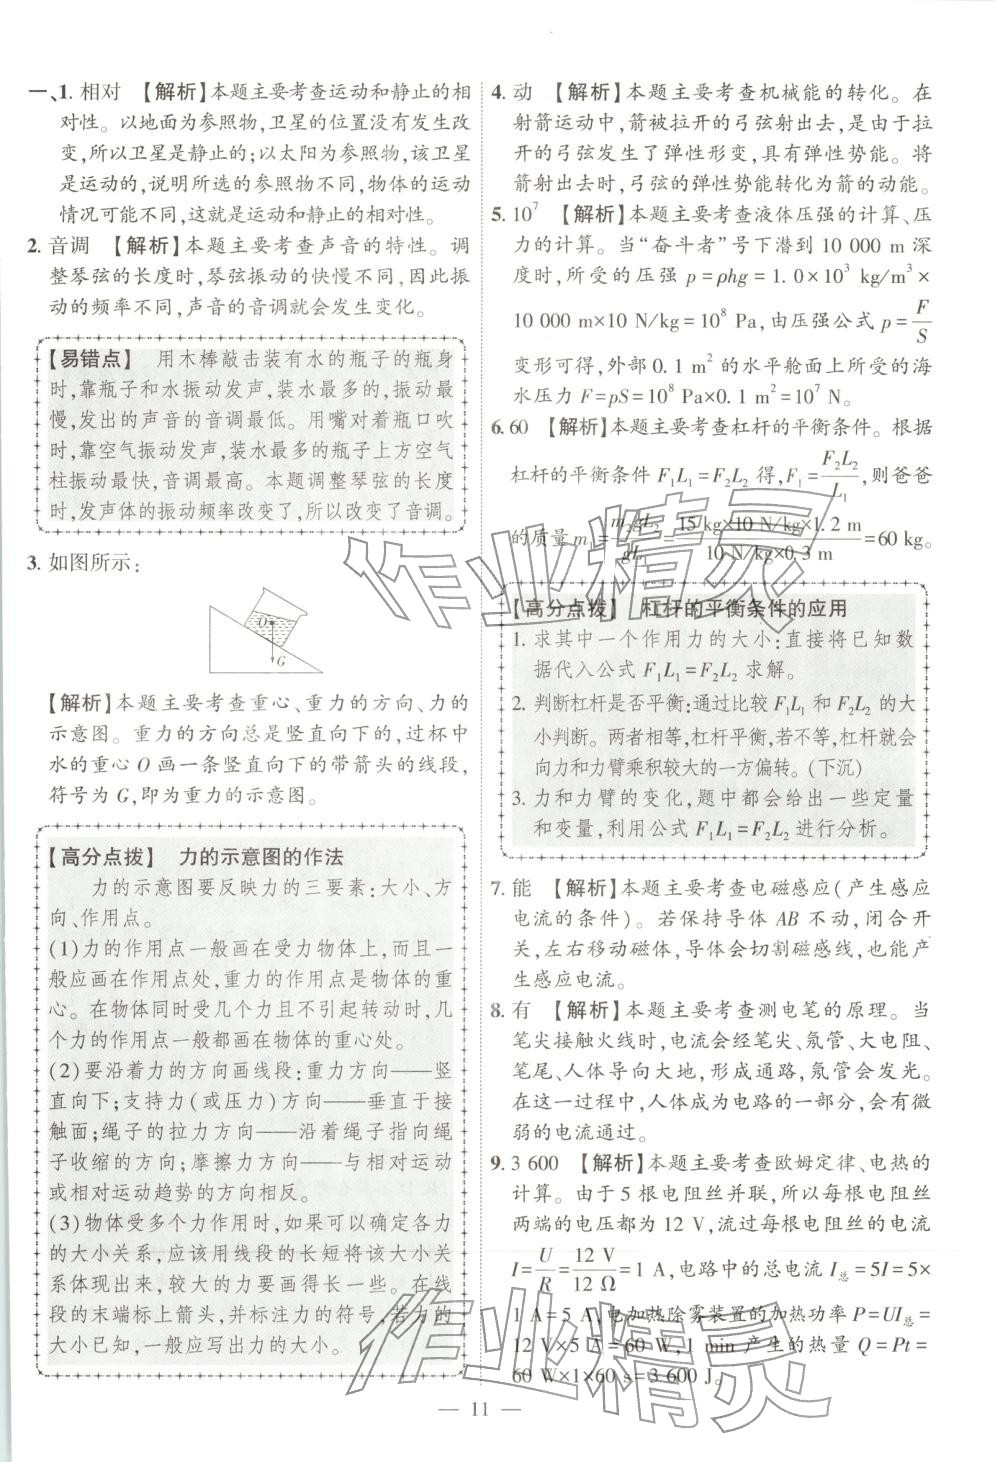 一、1. 相对 【解析】本题主要考查运动和静止的相
对性。以地面为参照物,卫星的位置没有发生改
变,所以卫星是静止的;以太阳为参照物,该卫星
是运动的,说明所选的参照物不同,物体的运动
情况可能不同,这就是运动和静止的相对性。
2. 音调 【解析】本题主要考查声音的特性。调
整琴弦的长度时,琴弦振动的快慢不同,因此振
动的频率不同,声音的音调就会发生变化。
【易错点】 用木棒敲击装有水的瓶子的瓶身
时,靠瓶子和水振动发声,装水最多的,振动最
慢,发出的声音的音调最低。用嘴对着瓶口吹
时,靠空气振动发声,装水最多的瓶子上方空气
柱振动最快,音调最高。本题调整琴弦的长度
时,发声体的振动频率改变了,所以改变了音调。
3. 如图所示:
O
G
【解析】本题主要考查重心、重力的方向、力的
示意图。重力的方向总是竖直向下的,过杯中
水的重心 O 画一条竖直向下的带箭头的线段,
符号为 G,即为重力的示意图。
【高分点拨】 力的示意图的作法
力的示意图要反映力的三要素:大小、方
向、作用点。
(1)力的作用点一般画在受力物体上,而且一
般应画在作用点处,重力的作用点是物体的重
心。在物体同时受几个力且不引起转动时,几
个力的作用点一般都画在物体的重心处。
(2)要沿着力的方向画线段:重力方向——竖
直向下;支持力(或压力)方向——垂直于接
触面;绳子的拉力方向——沿着绳子指向绳
子收缩的方向;摩擦力方向——与相对运动
或相对运动趋势的方向相反。
(3)物体受多个力作用时,如果可以确定各力
的大小关系,应该用线段的长短将该大小关
系体现出来,较大的力要画得长一些。在线
段的末端标上箭头,并标注力的符号,若力的
大小已知,一般应写出力的大小。
4. 动 【解析】本题主要考查机械能的转化。在
射箭运动中,箭被拉开的弓弦射出去,是由于拉
开的弓弦发生了弹性形变,具有弹性势能。将
箭射出去时,弓弦的弹性势能转化为箭的动能。
5. 10⁷ 【解析】本题主要考查液体压强的计算、压
力的计算。当“奋斗者”号下潜到 10 000 m 深
度时,所受的压强 p=ρhg=1.0×10³ kg/m³×
10 000 m×10 N/kg=10⁸ Pa,由压强公式 p=F/S
变形可得,外部 0.1 m²的水平舱面上所受的海
水压力 F=pS=10⁸ Pa×0.1 m²=10⁷ N。
6. 60 【解析】本题主要考查杠杆的平衡条件。根据
杠杆的平衡条件 F₁L₁=F₂L₂ 得,F₁=F₂L₂/L₁,则爸爸
的质量 m₁=m₂gL₂/gL₁=15 kg×10 N/kg×1.2 m/10 N/kg×0.3 m=60 kg。
【高分点拨】 杠杆的平衡条件的应用
1. 求其中一个作用力的大小:直接将已知数
据代入公式 F₁L₁=F₂L₂ 求解。
2. 判断杠杆是否平衡:通过比较 F₁L₁ 和 F₂L₂ 的大
小判断。两者相等,杠杆平衡,若不等,杠杆就会
向力和力臂乘积较大的一方偏转。(下沉)
3. 力和力臂的变化,题中都会给出一些定量
和变量,利用公式 F₁L₁=F₂L₂ 进行分析。
7. 能 【解析】本题主要考查电磁感应(产生感应
电流的条件)。若保持导体 AB 不动,闭合开
关,左右移动磁体,导体会切割磁感线,也能产
生感应电流。
8. 有 【解析】本题主要考查测电笔的原理。当
笔尖接触火线时,电流会经笔尖、氖管、大电阻、
笔尾、人体导向大地,形成通路,氖管会发光。
在这一过程中,人体成为电路的一部分,会有微
弱的电流通过。
9. 3 600 【解析】本题主要考查欧姆定律、电热的
计算。由于 5 根电阻丝并联,所以每根电阻丝
两端的电压都为 12 V,流过每根电阻丝的电流
I=U/R=12 V/12 Ω=1 A,电路中的总电流 I总=5I=5×
1 A=5 A,电加热除雾装置的加热功率 P=UI总=
12 V×5 A=60 W,1 min 产生的热量 Q=Pt=
60 W×1×60 s=3 600 J。
— 11 —
作业精灵
作业精灵